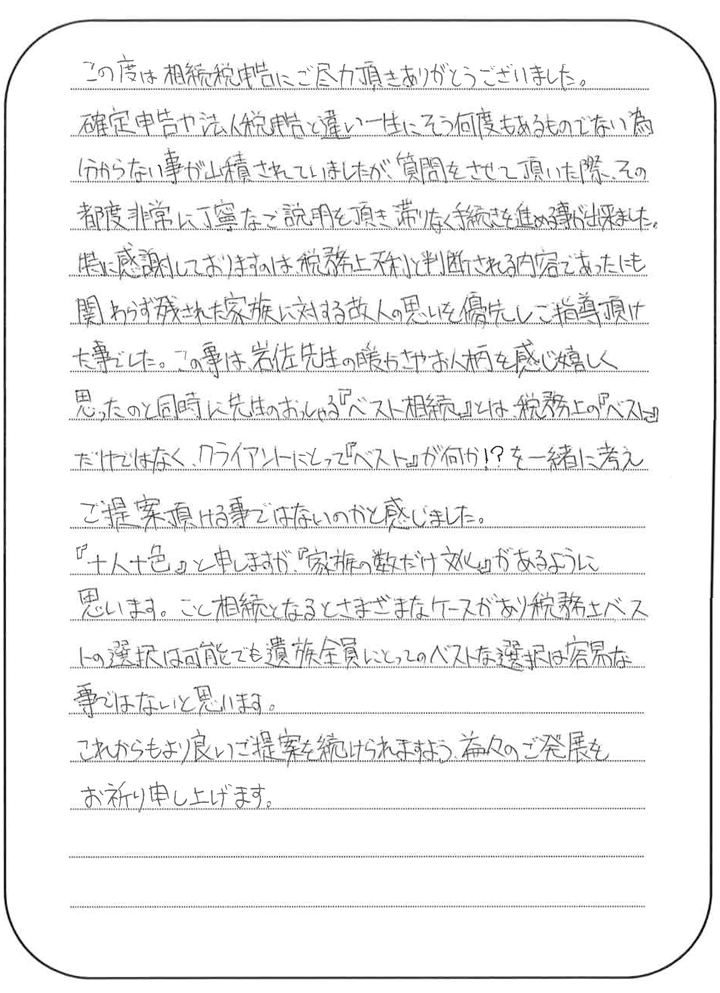 この度は相続税申告にご尽力頂きありがとうございました。
確定申告や法人税申告と違い一生にそう何度もあるものでない為
分からない事が山積されていましたが、質問をさせて頂いた際、その
都度非常に丁寧なご説明を頂き滞りなく手続きを進める事が出来ました。
特に感謝しておりますのは、税務上不利と判断される内容であったにも
関わらず残された家族に対する故人の思いを優先しご指導頂け
た事でした。この事は、岩佐先生の暖かさやお人柄を感じ嬉しく
思ったのと同時に先生のおっしゃる『ベスト相続』とは、税務上の『ベスト』
だけではなく、クライアントにとって『ベスト』が何か!?を一緒に考え
ご提案頂ける事ではないのかと感じました。
『十人十色』と申しますが、『家族の数だけ文化』があるように
思います。こと相続となるとさまざまなケースがあり税務上ベス
トの選択は可能でも遺族全員にとってのベストな選択は容易な
事ではないと思います。
これからもより良いご提案を続けられますよう、益々のご発展を
お祈り申し上げます。